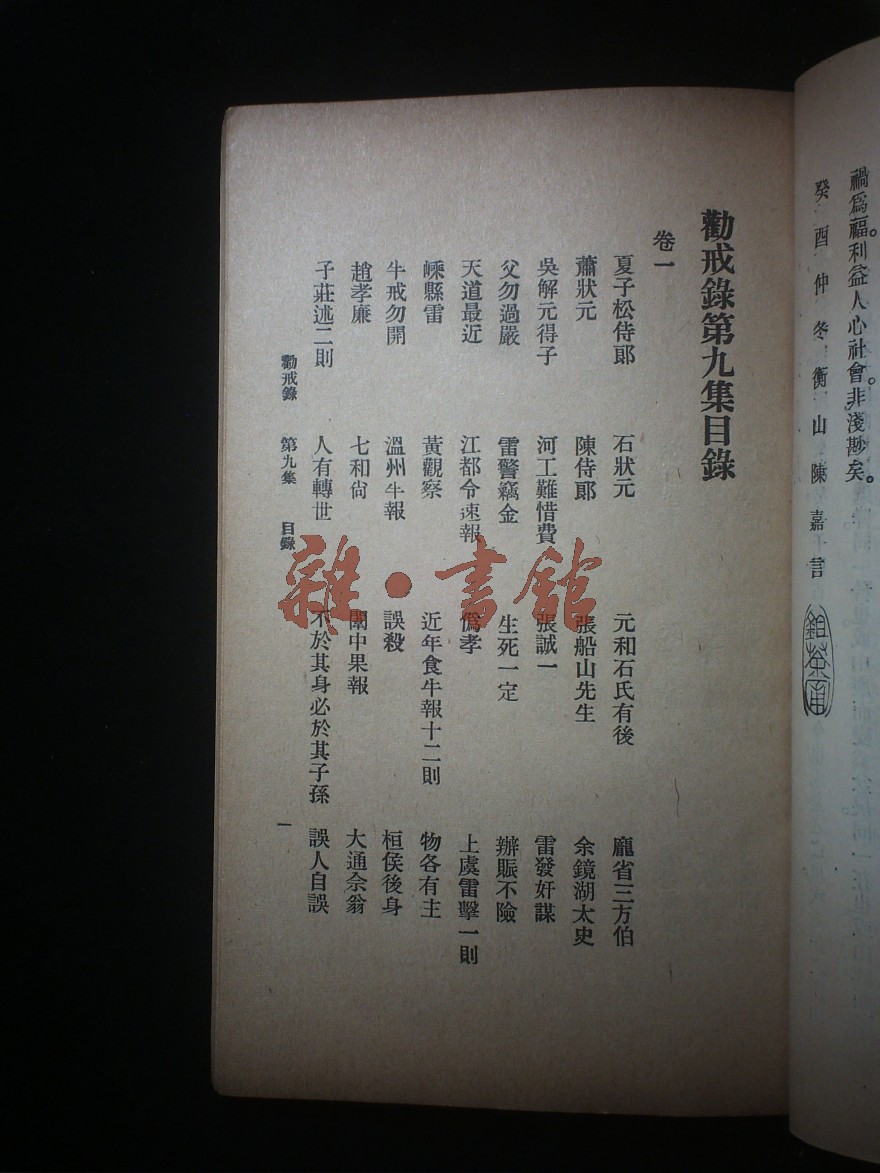 禍爲福。利益人心社會。非淺尠矣。
癸酉仲冬衡山陳嘉言
勸戒錄第九集目錄
卷一
夏子松侍郞 石狀元 元和石氏有後 龐省三方伯
蕭狀元 陳侍郞 張船山先生 余鏡湖太史
吳解元得子 河工難惜費 張誠一 雷發奸謀
父勿過嚴 雷警竊金 生死一定 辦賑不險
天道最近 江都令速報 僞孝 上虞雷擊一則
嵊縣雷 黃觀察 近年食牛報十二則 物各有主
牛戒勿開 溫州牛報 誤殺 桓侯後身
趙孝廉 七和尙 閩中果報 大通佘翁
子莊述二則 人有轉世 不於其身必於其子孫 誤人自誤
勸戒錄 第九集 目錄 一
雜·書館